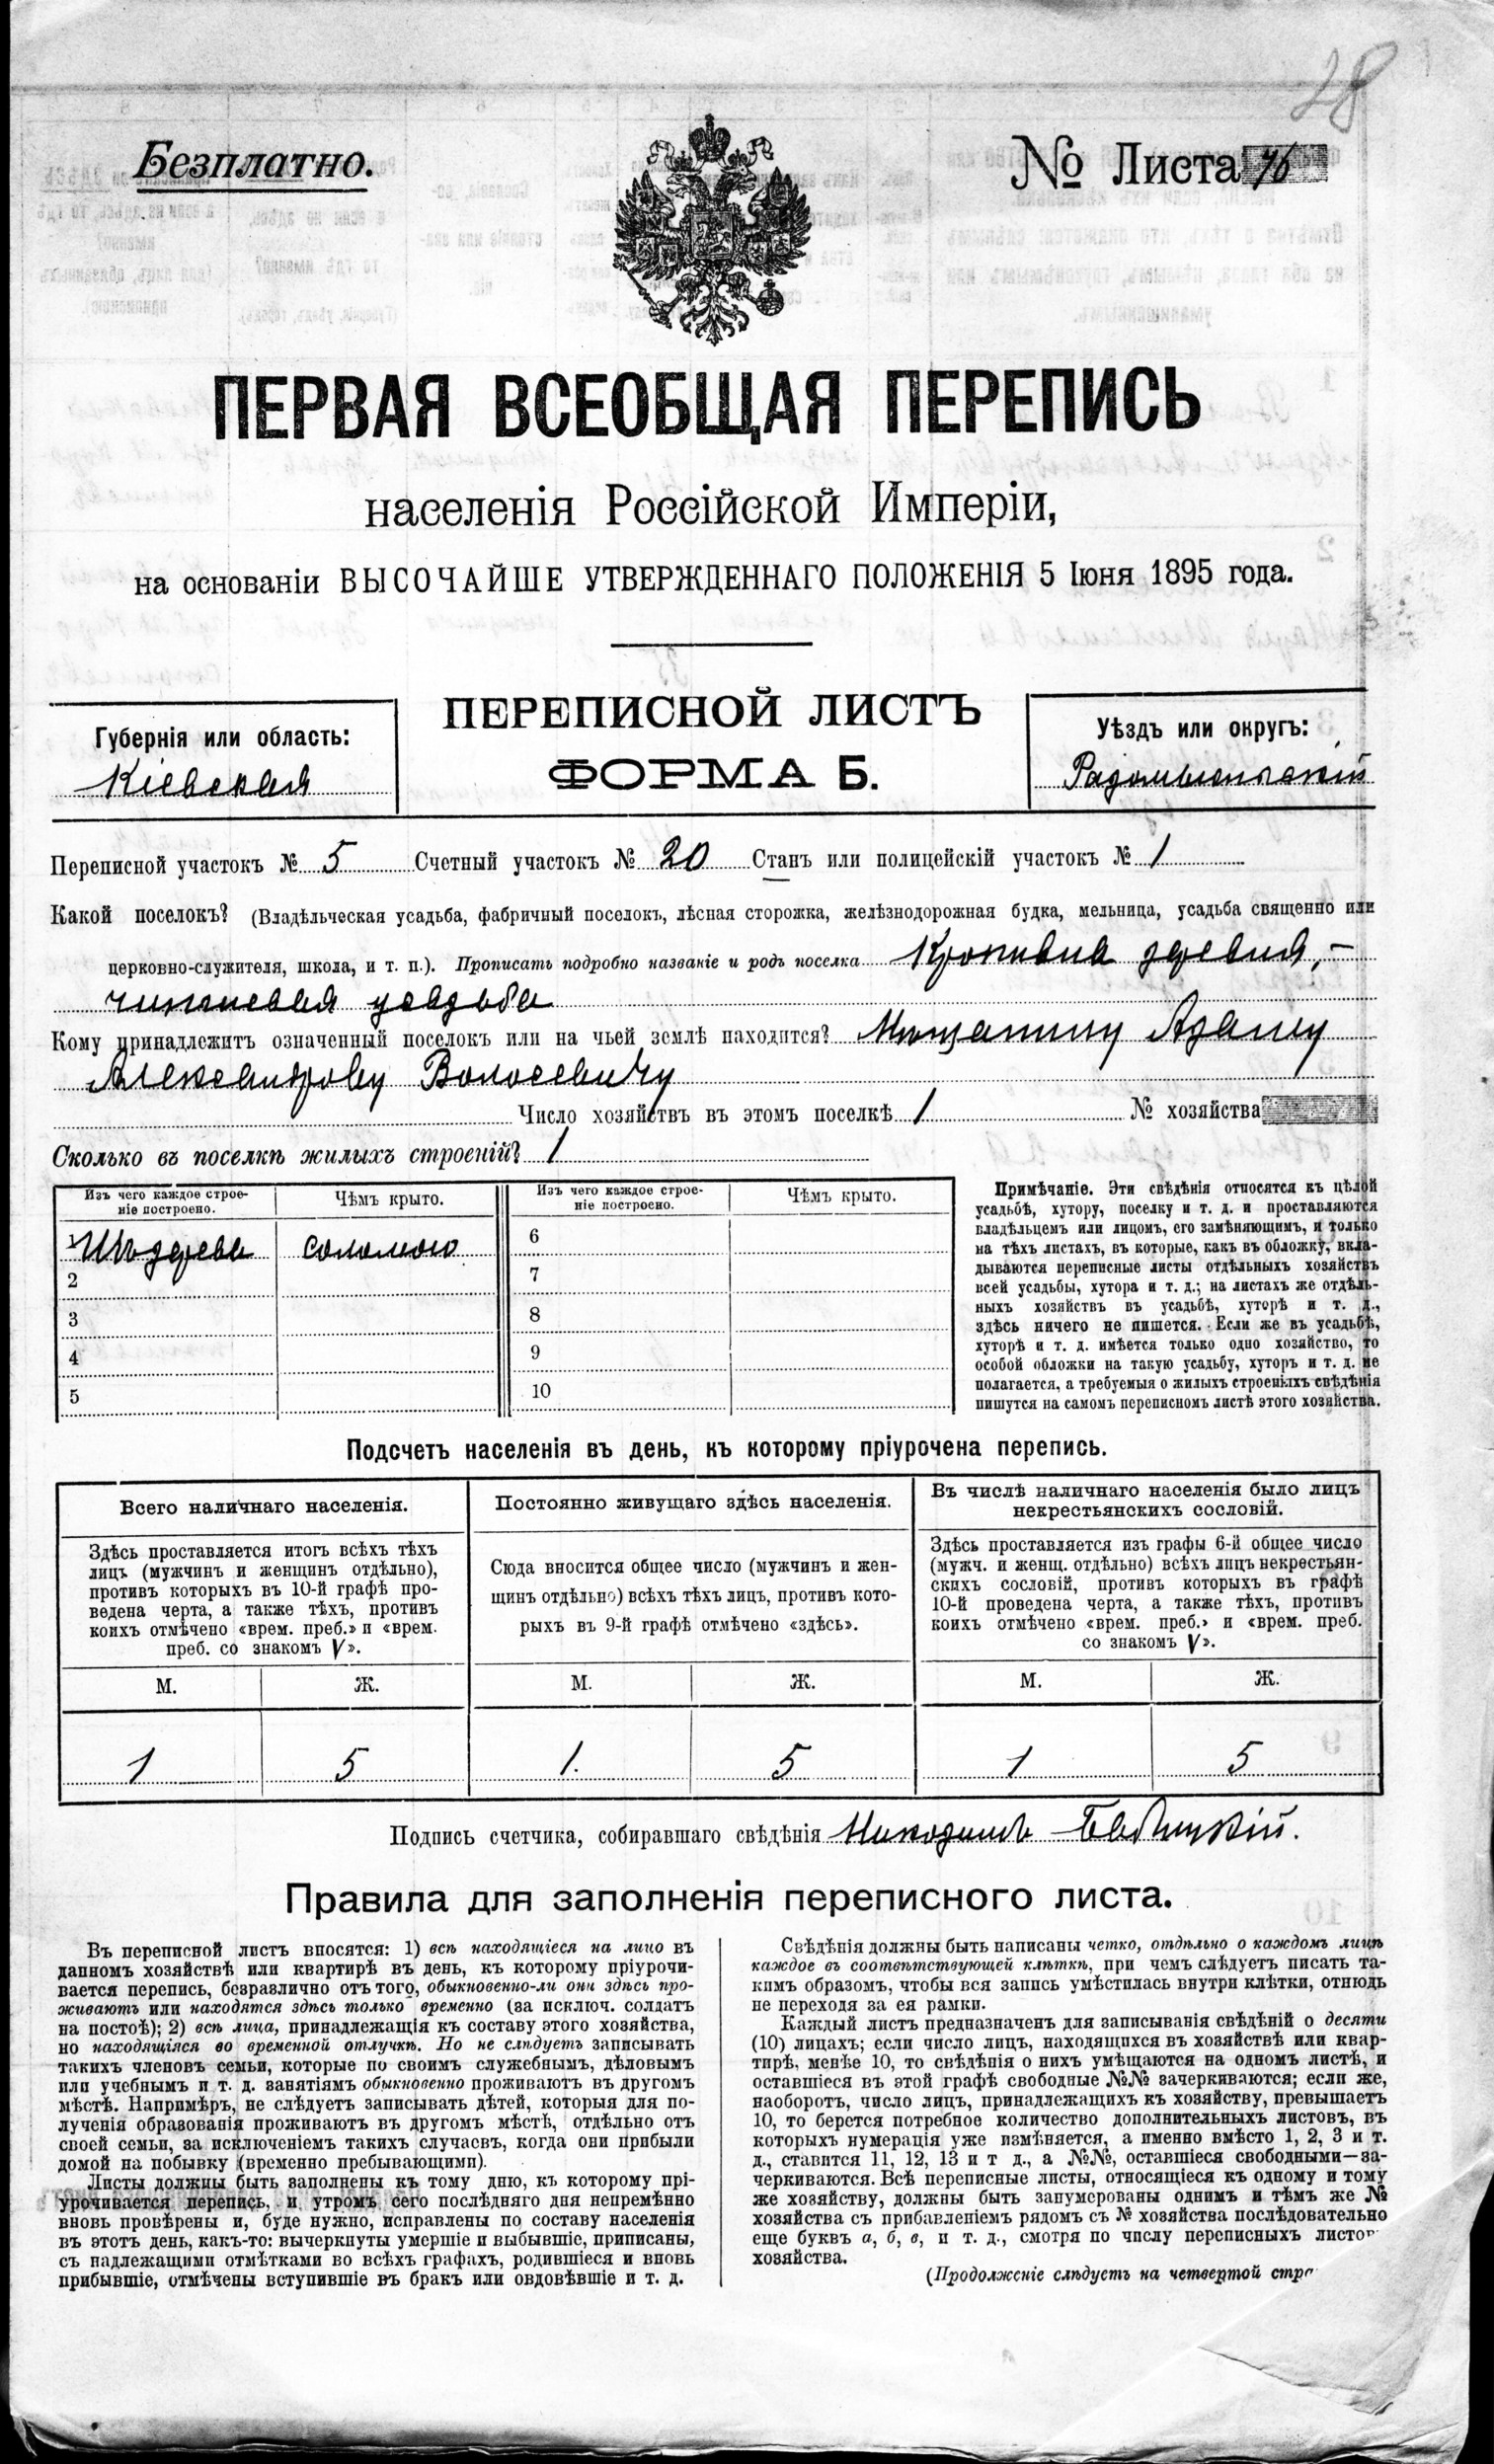 28
Безплатно.
№ Листа 46
ПЕРВАЯ ВСЕОБЩАЯ ПЕРЕПИСЬ
населенія Россійской Имперіи,
на основаніи ВЫСОЧАЙШЕ УТВЕРЖДЕННАГО ПОЛОЖЕНІЯ 5 Іюня 1895 года.
Губернія или область:
Кіевская
ПЕРЕПИСНОЙ ЛИСТЪ
ФОРМА Б.
Уѣздъ или округъ:
Радомысльскій
Переписной участокъ № 5 Счетный участокъ № 20 Станъ или полицейскій участокъ № 1
Какой поселокъ? (Владѣльческая усадьба, фабричный поселокъ, лѣсная сторожка, желѣзнодорожная будка, мельница, усадьба священно или
церковно-служителя, школа, и т. п.). Прописать подробно названіе и родъ поселка Кропивна деревня, –
чиншевая усадьба
Кому принадлежитъ означенный поселокъ или на чьей землѣ находится? Мѣщанину Адаму
Александрову Волосевичу
Число хозяйствъ въ этомъ поселкѣ 1 № хозяйства
Сколько въ поселкѣ жилыхъ строеній? 1
Изъ чего каждое строе-
ніе построено.
Чѣмъ крыто.
Изъ чего каждое строе-
ніе построено.
Чѣмъ крыто.
1 Изъ дерева соломою
2
3
4
5
6
7
8
9
10
Примѣчаніе. Эти свѣдѣнія относятся къ цѣлой
усадьбѣ, хутору, поселку и т. д. и проставляются
владѣльцемъ или лицомъ, его замѣняющимъ, и только
на тѣхъ листахъ, въ которые, какъ въ обложку, вкла-
дываются переписные листы отдѣльныхъ хозяйствъ
всей усадьбы, хутора и т. д.; на листахъ же отдѣль-
ныхъ хозяйствъ въ усадьбѣ, хуторѣ и т. д.,
здѣсь ничего не пишется. Если же въ усадьбѣ,
хуторѣ и т. д. имѣется только одно хозяйство, то
особой обложки на такую усадьбу, хуторъ и т. д. не
полагается, а требуемыя о жилыхъ строеніяхъ свѣдѣнія
пишутся на самомъ переписномъ листѣ этого хозяйства.
Подсчетъ населенія въ день, къ которому пріурочена перепись.
Всего наличнаго населенія.
Здѣсь проставляется итогъ всѣхъ тѣхъ
лицъ (мужчинъ и женщинъ отдѣльно),
противъ которыхъ въ 10-й графѣ про-
ведена черта, а также тѣхъ, противъ
коихъ отмѣчено «врем. преб.» и «врем.
преб. со знакомъ V».
М. Ж.
1 5
Постоянно живущаго здѣсь населенія.
Сюда вносится общее число (мужчинъ и жен-
щинъ отдѣльно) всѣхъ тѣхъ лицъ, противъ кото-
рыхъ въ 9-й графѣ отмѣчено «здѣсь».
М. Ж.
1. 5
Въ числѣ наличнаго населенія было лицъ
некрестьянскихъ сословій.
Здѣсь проставляется изъ графы 6-й общее число
(мужч. и женщ. отдѣльно) всѣхъ лицъ некрестьян-
скихъ сословій, противъ которыхъ въ графѣ
10-й проведена черта, а также тѣхъ, противъ
коихъ отмѣчено «врем. преб.» и «врем. преб.
со знакомъ V».
М. Ж.
1 5
Подпись счетчика, собиравшаго свѣдѣнія Никодимъ
Правила для заполненія переписного листа.
Въ переписной листъ вносятся: 1) всѣ находящіеся на лицо въ
данномъ хозяйствѣ или квартирѣ въ день, къ которому пріурочи-
вается перепись, безразлично отъ того, обыкновенно-ли они здѣсь про-
живаютъ или находятся здѣсь только временно (за исключ. солдатъ
на постоѣ); 2) всѣ лица, принадлежащія къ составу этого хозяйства,
но находящіяся во временной отлучкѣ. Но не слѣдуетъ записывать
такихъ членовъ семьи, которые по своимъ служебнымъ, дѣловымъ
или учебнымъ и т. д. занятіямъ обыкновенно проживаютъ въ другомъ
мѣстѣ. Напримѣръ, не слѣдуетъ записывать дѣтей, которыя для по-
лученія образованія проживаютъ въ другомъ мѣстѣ, отдѣльно отъ
своей семьи, за исключеніемъ такихъ случаевъ, когда они прибыли
домой на побывку (временно пребывающими).
Листы должны быть заполнены къ тому дню, къ которому прі-
урочивается перепись, и утромъ сего послѣдняго дня непремѣнно
вновь провѣрены и, буде нужно, исправлены по составу населенія
въ этотъ день, какъ-то: вычеркнуты умершіе и выбывшіе, приписаны,
съ надлежащими отмѣтками во всѣхъ графахъ, родившіеся и вновь
прибывшіе, отмѣчены вступившіе въ бракъ или овдовѣвшіе и т. д.
Свѣдѣнія должны быть написаны четко, отдѣльно о каждомъ лицѣ
каждое въ соотвѣтствующей клѣткѣ, при чемъ слѣдуетъ писать та-
кимъ образомъ, чтобы вся запись умѣстилась внутри клѣтки, отнюдь
не переходя за ея рамки.
Каждый листъ предназначенъ для записыванія свѣдѣній о десяти
(10) лицахъ; если число лицъ, находящихся въ хозяйствѣ или квар-
тирѣ, менѣе 10, то свѣдѣнія о нихъ умѣщаются на одномъ листѣ, и
оставшіеся въ этой графѣ свободные №№ зачеркиваются; если же,
наоборотъ, число лицъ, принадлежащихъ къ хозяйству, превышаетъ
10, то берется потребное количество дополнительныхъ листовъ, въ
которыхъ нумерація уже измѣняется, а именно вмѣсто 1, 2, 3 и т.
д., ставится 11, 12, 13 и т д., а №№, оставшіеся свободными—за-
черкиваются. Всѣ переписные листы, относящіеся къ одному и тому
же хозяйству, должны быть занумерованы однимъ и тѣмъ же №
хозяйства съ прибавленіемъ рядомъ съ № хозяйства послѣдовательно
еще буквъ а, б, в, и т. д., смотря по числу переписныхъ листов
хозяйства.
(Продолженіе слѣдуетъ на четвертой стр